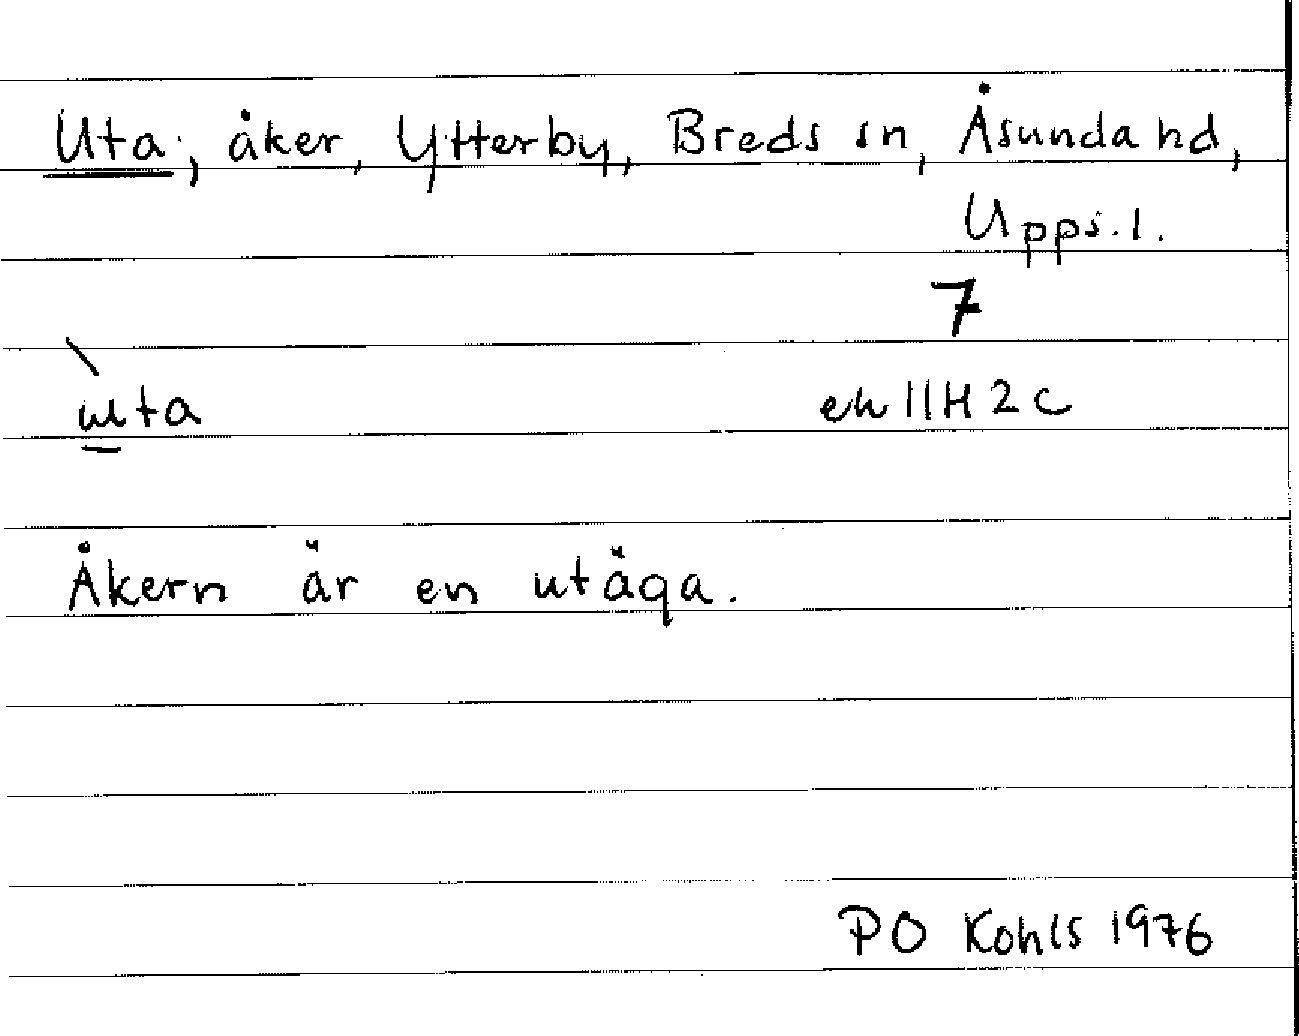 Uta, åker, Ytterby, Breds sn, Åsunda hd,
Upps. l.
7
uta
ek 11H 2 c
Åkern är en utäga.
PO Kohls 1976